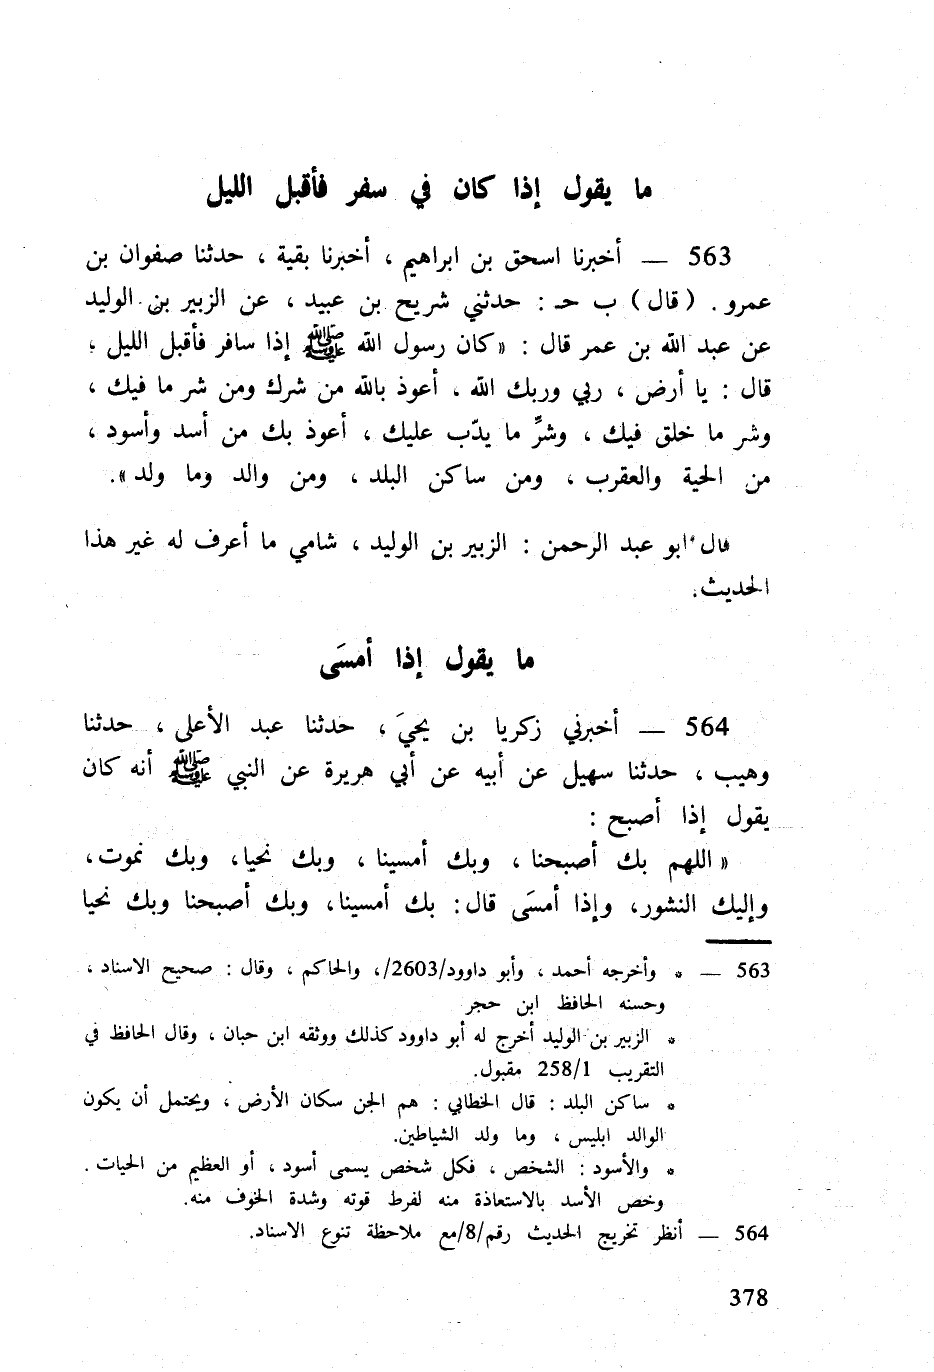 ما يقول إذا كان في سفر فأقبل الليل
563 — أخبرنا اسحق بن ابراهيم ، أخبرنا بقية ، حدثنا صفوان بن
عمرو . ( قال ) ب حـ : حدثني شريح بن عبيد ، عن الزبير بن الوليد
عن عبد الله بن عمر قال : «كان رسول الله ﷺ إذا سافر فأقبل الليل ؛
قال : يا أرض ، ربي وربك الله . أعوذ بالله من شرك ومن شر ما فيك ،
وشر ما خلق فيك ، وشرِّ ما يدّب عليك ، أعوذ بك من أسد وأسود ،
من الحية والعقرب ، ومن ساكن البلد ، ومن والد وما ولد ».
قال ابو عبد الرحمن : الزبير بن الوليد ، شامي ما أعرف له غير هذا
الحديث.
ما يقول إذا أمسَى
564 — أخبرني زكريا بن يحيَ ، حدثنا عبد الأعلى ، حدثنا
وهيب ، حدثنا سهيل عن أبيه عن أبي هريرة عن النبي ﷺ أنه كان
يقول إذا أصبح :
« اللهم بك أصبحنا ، وبك أمسينا ، وبك نحيا، وبك نموت،
وإليك النشور، وإذا أمسَى قال: بك أمسينا، وبك أصبحنا وبك نحيا
563 — * وأخرجه أحمد ، وأبو داوود/2603/، والحاكم ، وقال : صحيح الاسناد ،
وحسنه الحافظ ابن حجر
* الزبير بن الوليد أخرج له أبو داوود كذلك ووثقه ابن حبان ، وقال الحافظ في
التقريب 258/1 مقبول.
* ساكن البلد : قال الخطابي : هم الجن سكان الأرض ، ويحتمل أن يكون
الوالد ابليس ، وما ولد الشياطين.
* والأسود : الشخص ، فكل شخص يسمى أسود ، أو العظيم من الحيات .
وخص الأسد بالاستعاذة منه لفرط قوته وشدة الخوف منه.
564 — أنظر تخريج الحديث رقم/8/مع ملاحظة تنوع الاسناد.
378